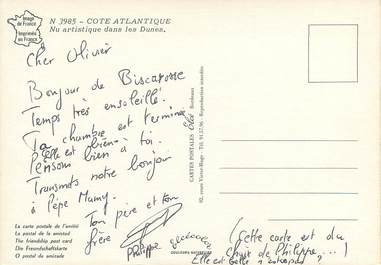 Image
de France
Imprimée
en France
N 3985 - COTE ATLANTIQUE
Nu artistique dans les Dunes.
Cher Olivier
Bonjour de Biscarosse
Temps très ensoleillé!
Ta chambre est terminée
Elle est bien à toi.
Pensons bien à toi.
Transmets notre bonjour
à Pépé Mamy.
Ton père et ton
frère
Philippe
La carte postale de l'amitié
La postal de la amistad
The friendship post card
Die Freundschaftskarte
O postal de amizade
COULEURS NATURELLES
CARTES POSTALES Bordeaux
92, cours Victor-Hugo - Tél. 91.57.96 - Reproduction interdite
(Cette carte est du
choix de Philippe...!)
Elle est belle n'est-ce pas?